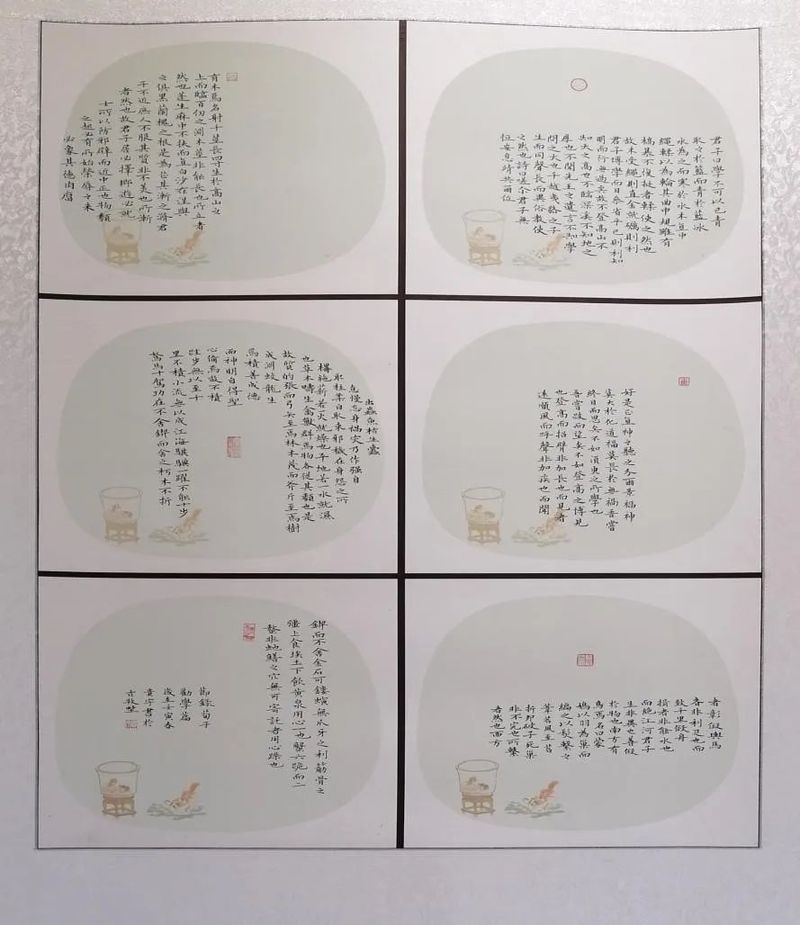 君子曰學不可以已青
取之於藍而青於藍冰
水為之而寒於水木直中
繩輮以為輪其曲中規雖有
槁暴不復挺者輮使之然也
故木受繩則直金就礪則利
君子博學而日參省乎己則知
明而行無過矣故不登高山不
知天之高也不臨深溪不知地之
厚也不聞先王之遺言不知學
問之大也干越夷貉之子
生而同聲長而異俗教使
之然也詩曰嗟尔君子無
恒安息靖共爾位
好是正直神之聽之介爾景福神
莫大於化道福莫長於無禍吾嘗
終日而思矣不如須臾之所學也
吾嘗跂而望矣不如登高之博見
也登高而招臂非加長也而見者
遠順風而呼聲非加疾也而聞
者彰假輿馬
者非利足也而
致千里假舟
楫者非能水也
而絕江河君子
生非異也善假
於物也南方有
鳥焉名曰蒙
鳩以羽為巢而
編之以髮繫之
葦苕風至苕
折卵破子死巢
非不完也所繫
者然也西方
有木焉名射干莖長四寸生於高山之
上而臨百仞之淵木莖非能長也所立者
然也蓬生麻中不扶而直白沙在涅與
之俱黑蘭槐之根是為芷其漸之滫君
子不近庶人不服其質非不美也所漸
者然也故君子居必擇鄉遊必就
士所以防邪辟而近中正也物類
之起必有所始榮辱之來
必象其德肉腐
出蟲魚枯生蠹
怠慢忘身禍灾乃作強自
取柱柔自取束邪穢在身怨之所
構施薪若火就燥也平地若一水就濕
也草木疇生禽獸群焉物各從其類也是
故質的張而弓矢至焉林木茂而斧斤至焉樹
成淵蛟龍生
焉積善成德
而神明自得聖
心備焉故不積
跬步無以至千
里不積小流無以成江海騏驥一躍不能十步
駑馬十駕功在不舍鍥而舍之朽木不折
鍥而不舍金石可鏤螾無爪牙之利筋骨之
強上食埃土下飲黃泉用心一也蟹六跪而二
螯非蛇蟺之穴無可寄託者用心躁也
節錄荀子
勸學篇
歲在壬寅春
書於